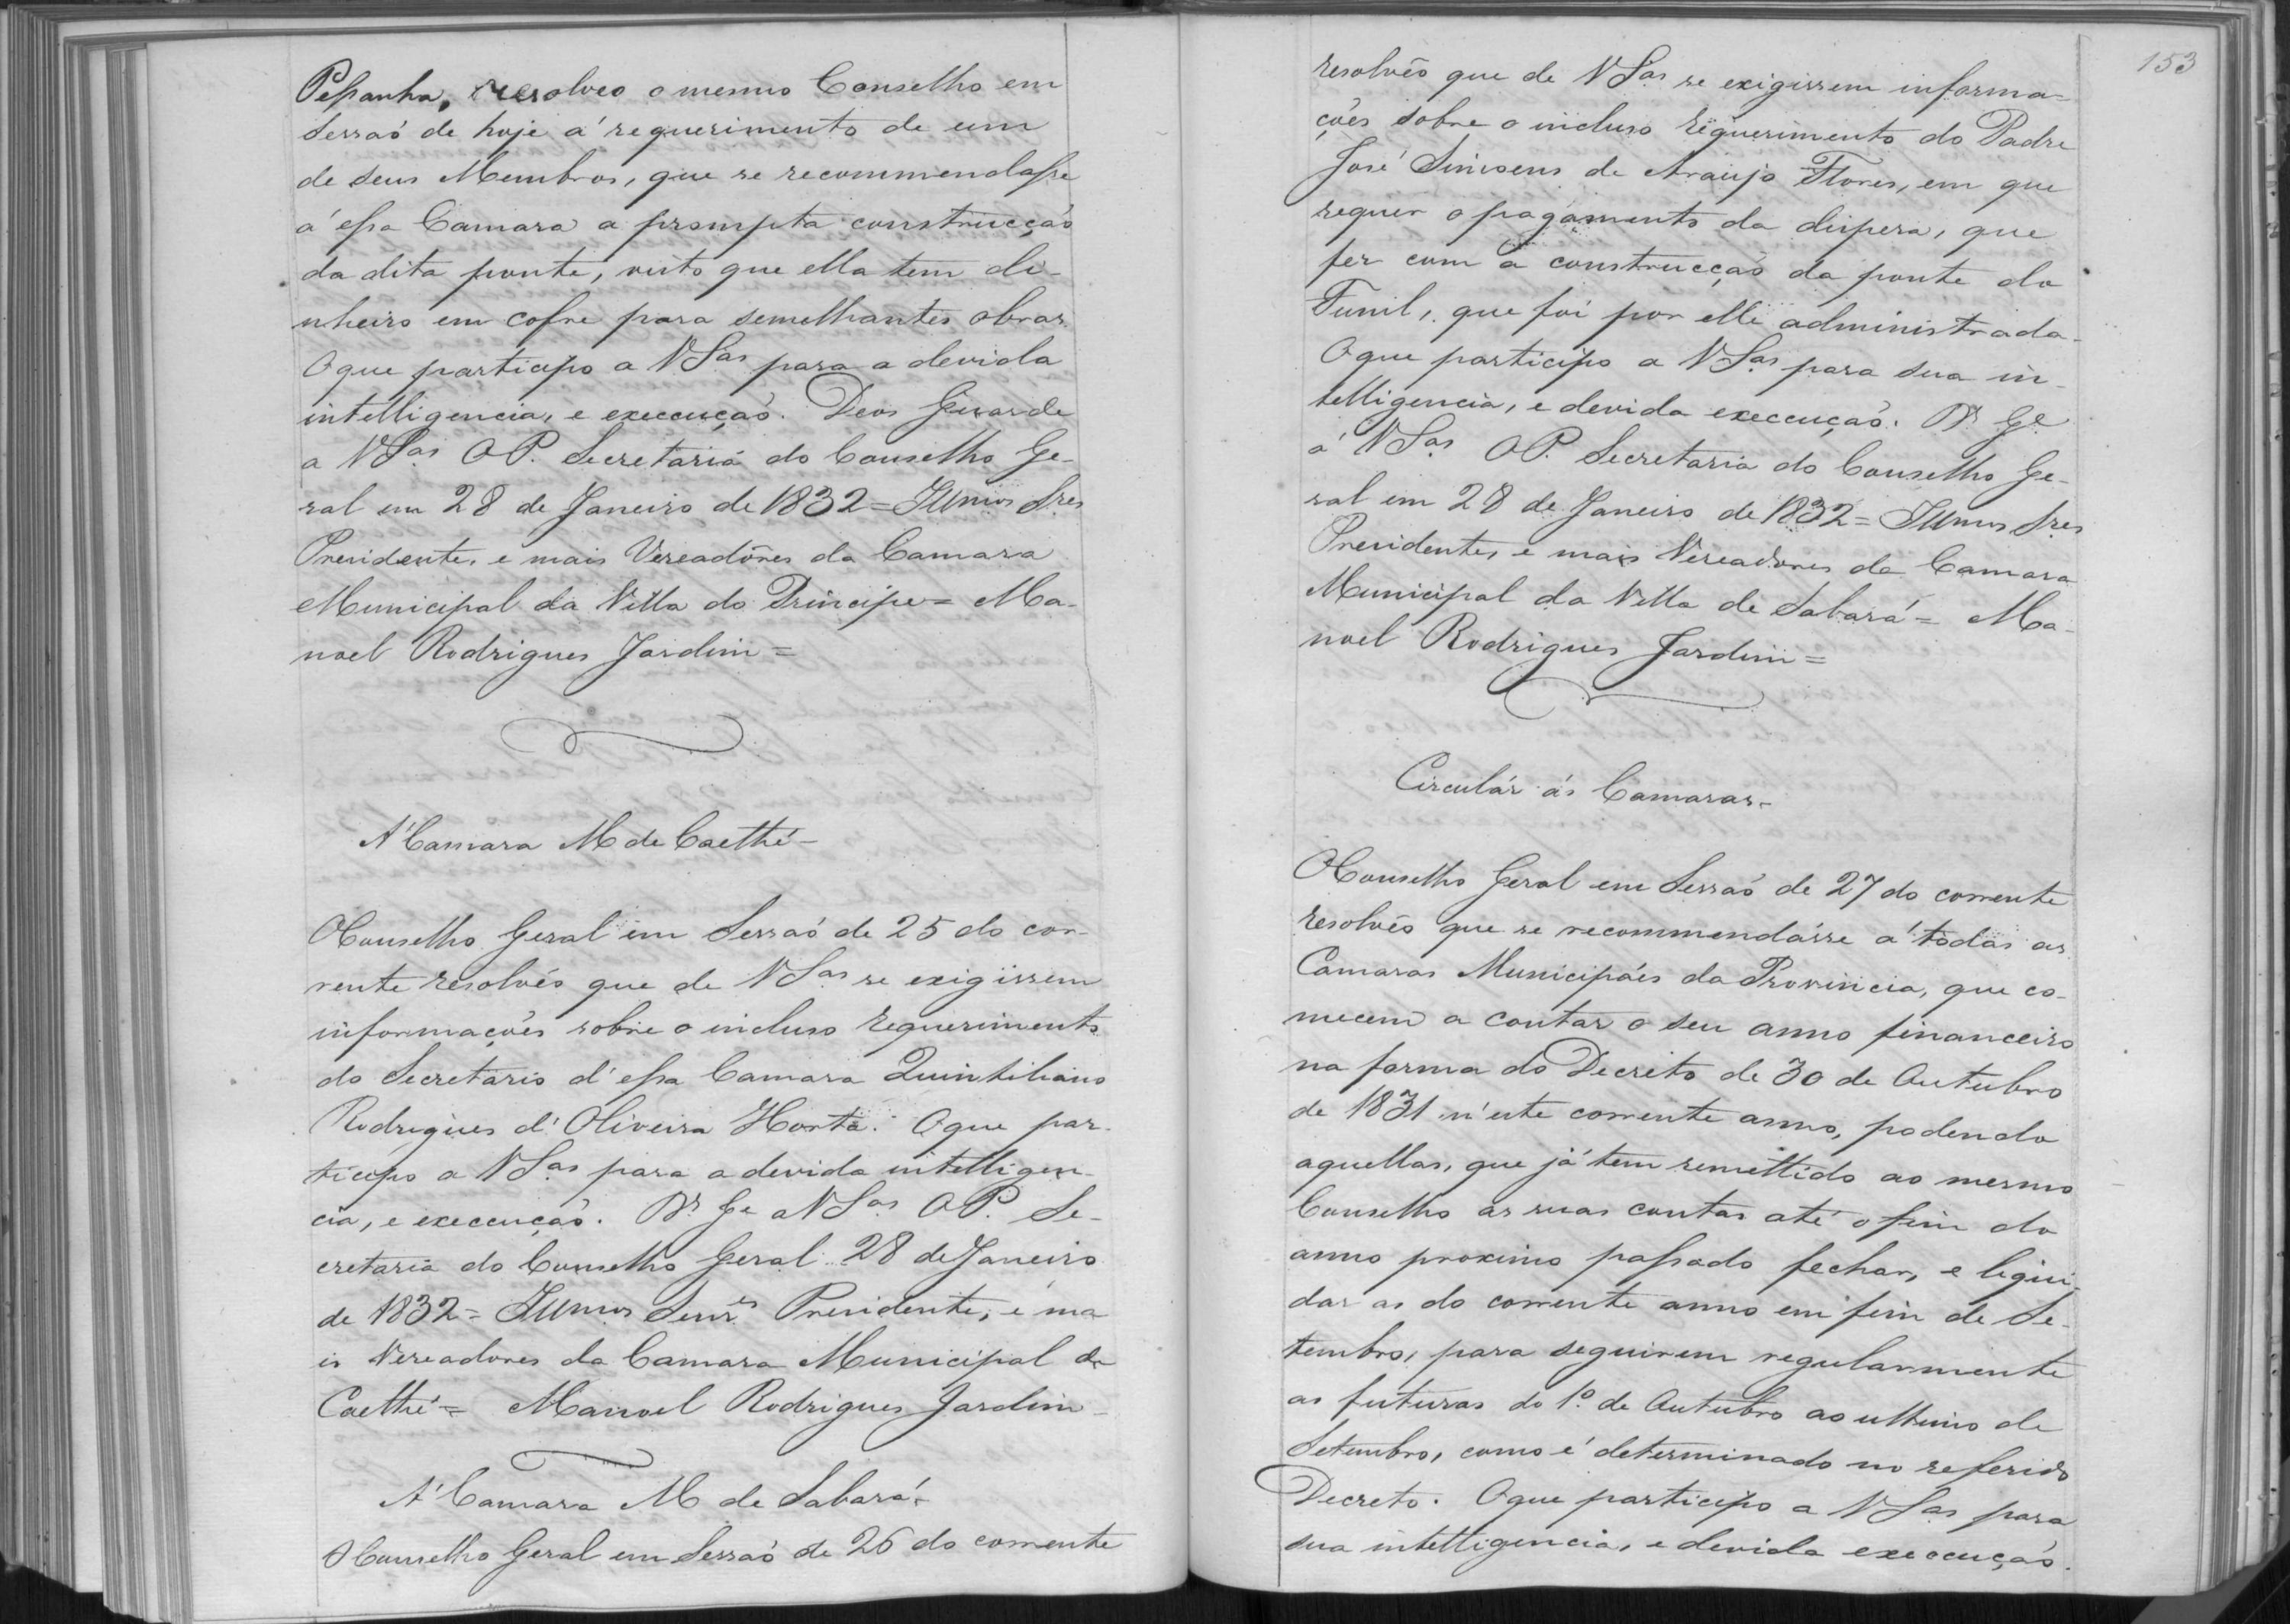 Peſsanha, resolveo o mesmo Conselho em
Sessaõ de hoje á requerimento de um
de seus Membros, que se recommendaſse
á eſsa Camara a prompta construcçaõ
da dita ponte, visto que ella tem di-
nheiro em cofre para semelhantes obras.
O que participo a VSas para a devida
intelligencia, e execcuçaõ. Deos Guarde
a VSas OP. Secretaria do Conselho Ge-
ral em 28 de Janeiro de 1832 = Illmos Sres
Presidente, e mais Vereadôres da Camara
Municipal da Villa do Principe = Ma-
noel Rodrigues Jardim =
Á Camara M de Caethé -
O Conselho Geral em Sessaõ de 25 do cor-
rente resolvêo que de VSas se exigissem
informaçoẽs sobre o incluso requerimento
do Secretario d'eſsa Camara Quintiliano
Rodrigues d'Oliveira Horta. O que par-
ticipo a VSas para a devida intelligen-
cia, e execcuçaõ. Ds Ge a VSas OP. Se-
cretaria do Conselho Geral 28 de Janeiro
de 1832 = Illmos Senres Presidente, e ma
is Vereadores da Camara Municipal de
Caethé = Manoel Rodrigues Jardim -
Á Camara M de Sabará -
O Conselho Geral em Sessaõ de 26 do corrente
153
resolvêo que de VSas se exigissem informa-
çoẽs sobre o incluso requerimento do Padre
José de Araujo Flores, em que
requer o pagamento da dispesa, que
fez com a construcçaõ da ponte do
Funil, que foi por elle administrada.
O que participo a VSas para sua in-
telligencia, e devida execcuçaõ. Ds Ge
á VSas OP. Secretaria do Conselho Ge-
ral em 28 de Janeiro de 1832 = Illmos Sres
Presidente, e mais Vereadores da Camara
Municipal da Villa de Sabará = Ma-
noel Rodrigues Jardim =
Circulár ás Camaras -
O Conselho Geral em Sessaõ de 27 do corrente
resolvêo que se recommendásse á todas as
Camaras Municipáes da Provincia, que co-
mecem a contar o seu anno financeiro
na forma do Decreto de 30 de Outubro
de 1831 n'este corrente anno, podendo
aquellas, que já tem remettido ao mesmo
Conselho as suas contas até o fim do
anno proximo paſsado fechar, e liqui-
dar as do corrente anno em fim de Se-
tembro, para seguirem regularmente
as futuras do 1º de Outubro ao ultimo de
Setembro, como é determinado no referido
Decreto. O que participo a VSas para
sua intelligencia, e devida execcuçaõ.